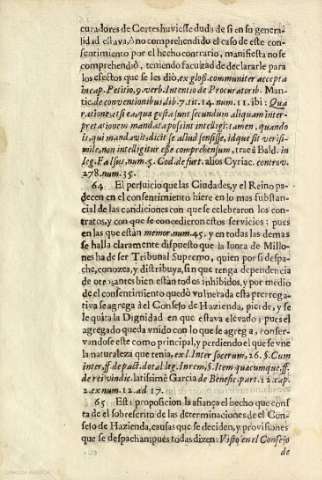 curadores de Cortes huviesse duda de si en su genera-
lidad estava, ò no comprehendido el caso de este con-
sentimiento por el hecho contrario, manifiesta no se
comprehendiò, teniendo facultad de declararle para
los efectos que se les dio, ex glos. communiter accepta
in cap. Petitio, 9. verb. Intentio de Procuratorib. Man-
tic. de conventionibus lib. 7. tit. 14. num. 11. ibi: Qua
ratione etsi ea, qua gesta sunt secundum aliquam inter-
pretationem mandata possint intelligi, tamen, quando
is, qui mandavit, dicit se aliud sensisse, idque sit verisi-
mile, non intelligitur esse comprehensum, traè Bald. in
leg. Falsus, num. 5. Cod. de furt. alios Cyriac. controv.
278. num. 35.
64 El perjuicio que las Ciudades, y el Reino pa-
decen en el consentimiento hiere en lo mas substan-
cial de las condiciones con que se celebraron los con-
tratos, y con que se concedieron estos servicios; pues
en las que estàn memor. num. 45. y en todas las demas
se halla claramente dispuesto que la Iunta de Millo-
nes ha de ser Tribunal Supremo, quien por si despa-
che, conozca, y distribuya, sin que tenga dependencia
de otro, antes bien estàn todos inhibidos, y por medio
de el consentimiento quedò vulnerada esta prerroga-
tiva se agrega del Consejo de Hazienda, pierde, y se
le quita la Dignidad en que estava elevado; pues el
agregado queda vnido con lo que se agrega, conser-
vandose este como principal, y perdiendo el que se vne
la naturaleza que tenia, ex l. Inter socerum, 26. §. Cum
inter, ff. de pact. dotal. leg. In rem, §. Item quæcumque, ff.
de rei vindic. latissimè Garcia de Benefic. part. 12. cap.
2. ex num. 12. ad 17.
65 Esta proposicion la afiança el hecho que cons-
ta de el sobreserito de las determinaciones de el Con-
sejo de Hazienda, causas que se deciden, y provisiones
que se despachan, pues todas dizen: Visto en el Consejo
de